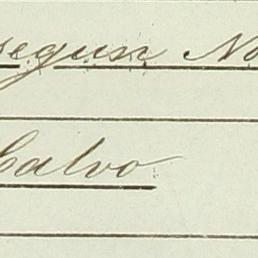 segun No
Calvo